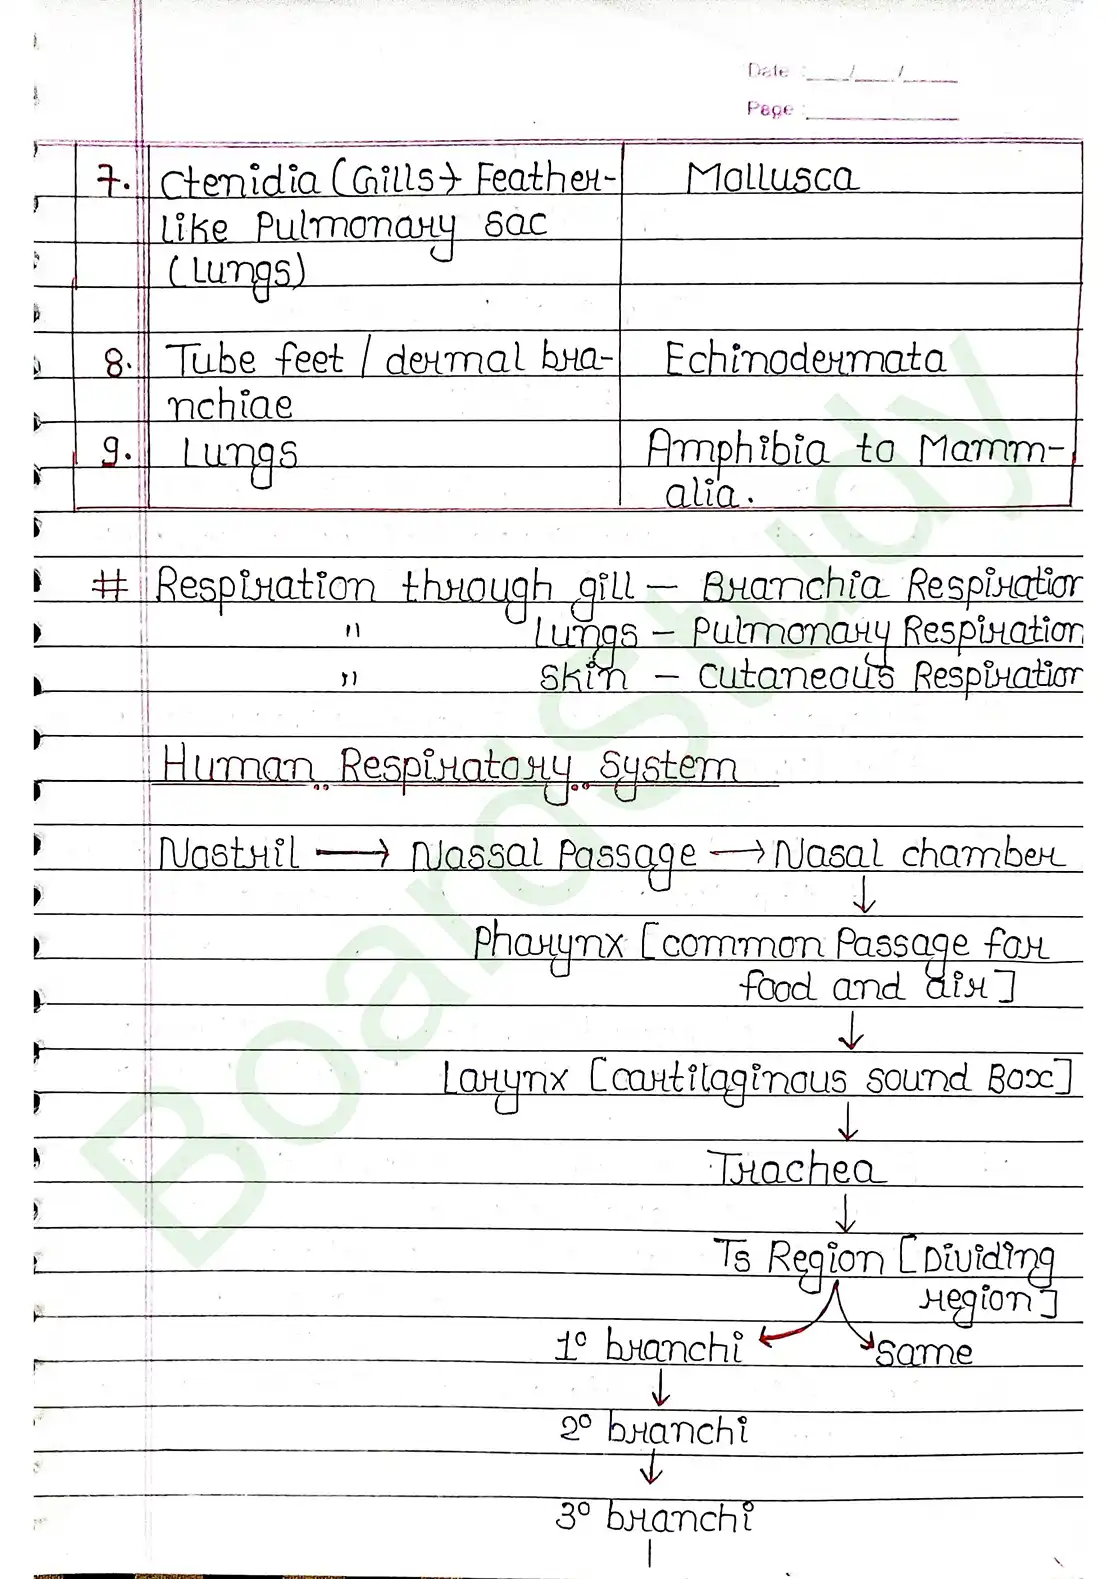 Date : ___/___/___
Page : ___
7. Ctenidia (Gills → Feather- Mollusca
like Pulmonary sac
(Lungs)
8. Tube feet / dermal bra- Echinodermata
nchiae
9. Lungs Amphibia to Mamm-
alia.
# Respiration through gill – Branchia Respiration
" Lungs – Pulmonary Respiration
" Skin – Cutaneous Respiration
Human Respiratory System
Nostril → Nassal Passage → Nasal chamber
↓
Pharynx [common Passage for
food and air]
↓
Larynx [cartilaginous sound Box]
↓
Trachea
↓
T5 Region [Dividing
region]
1° branchi same
↓
2° branchi
↓
3° branchi
BoardStudy